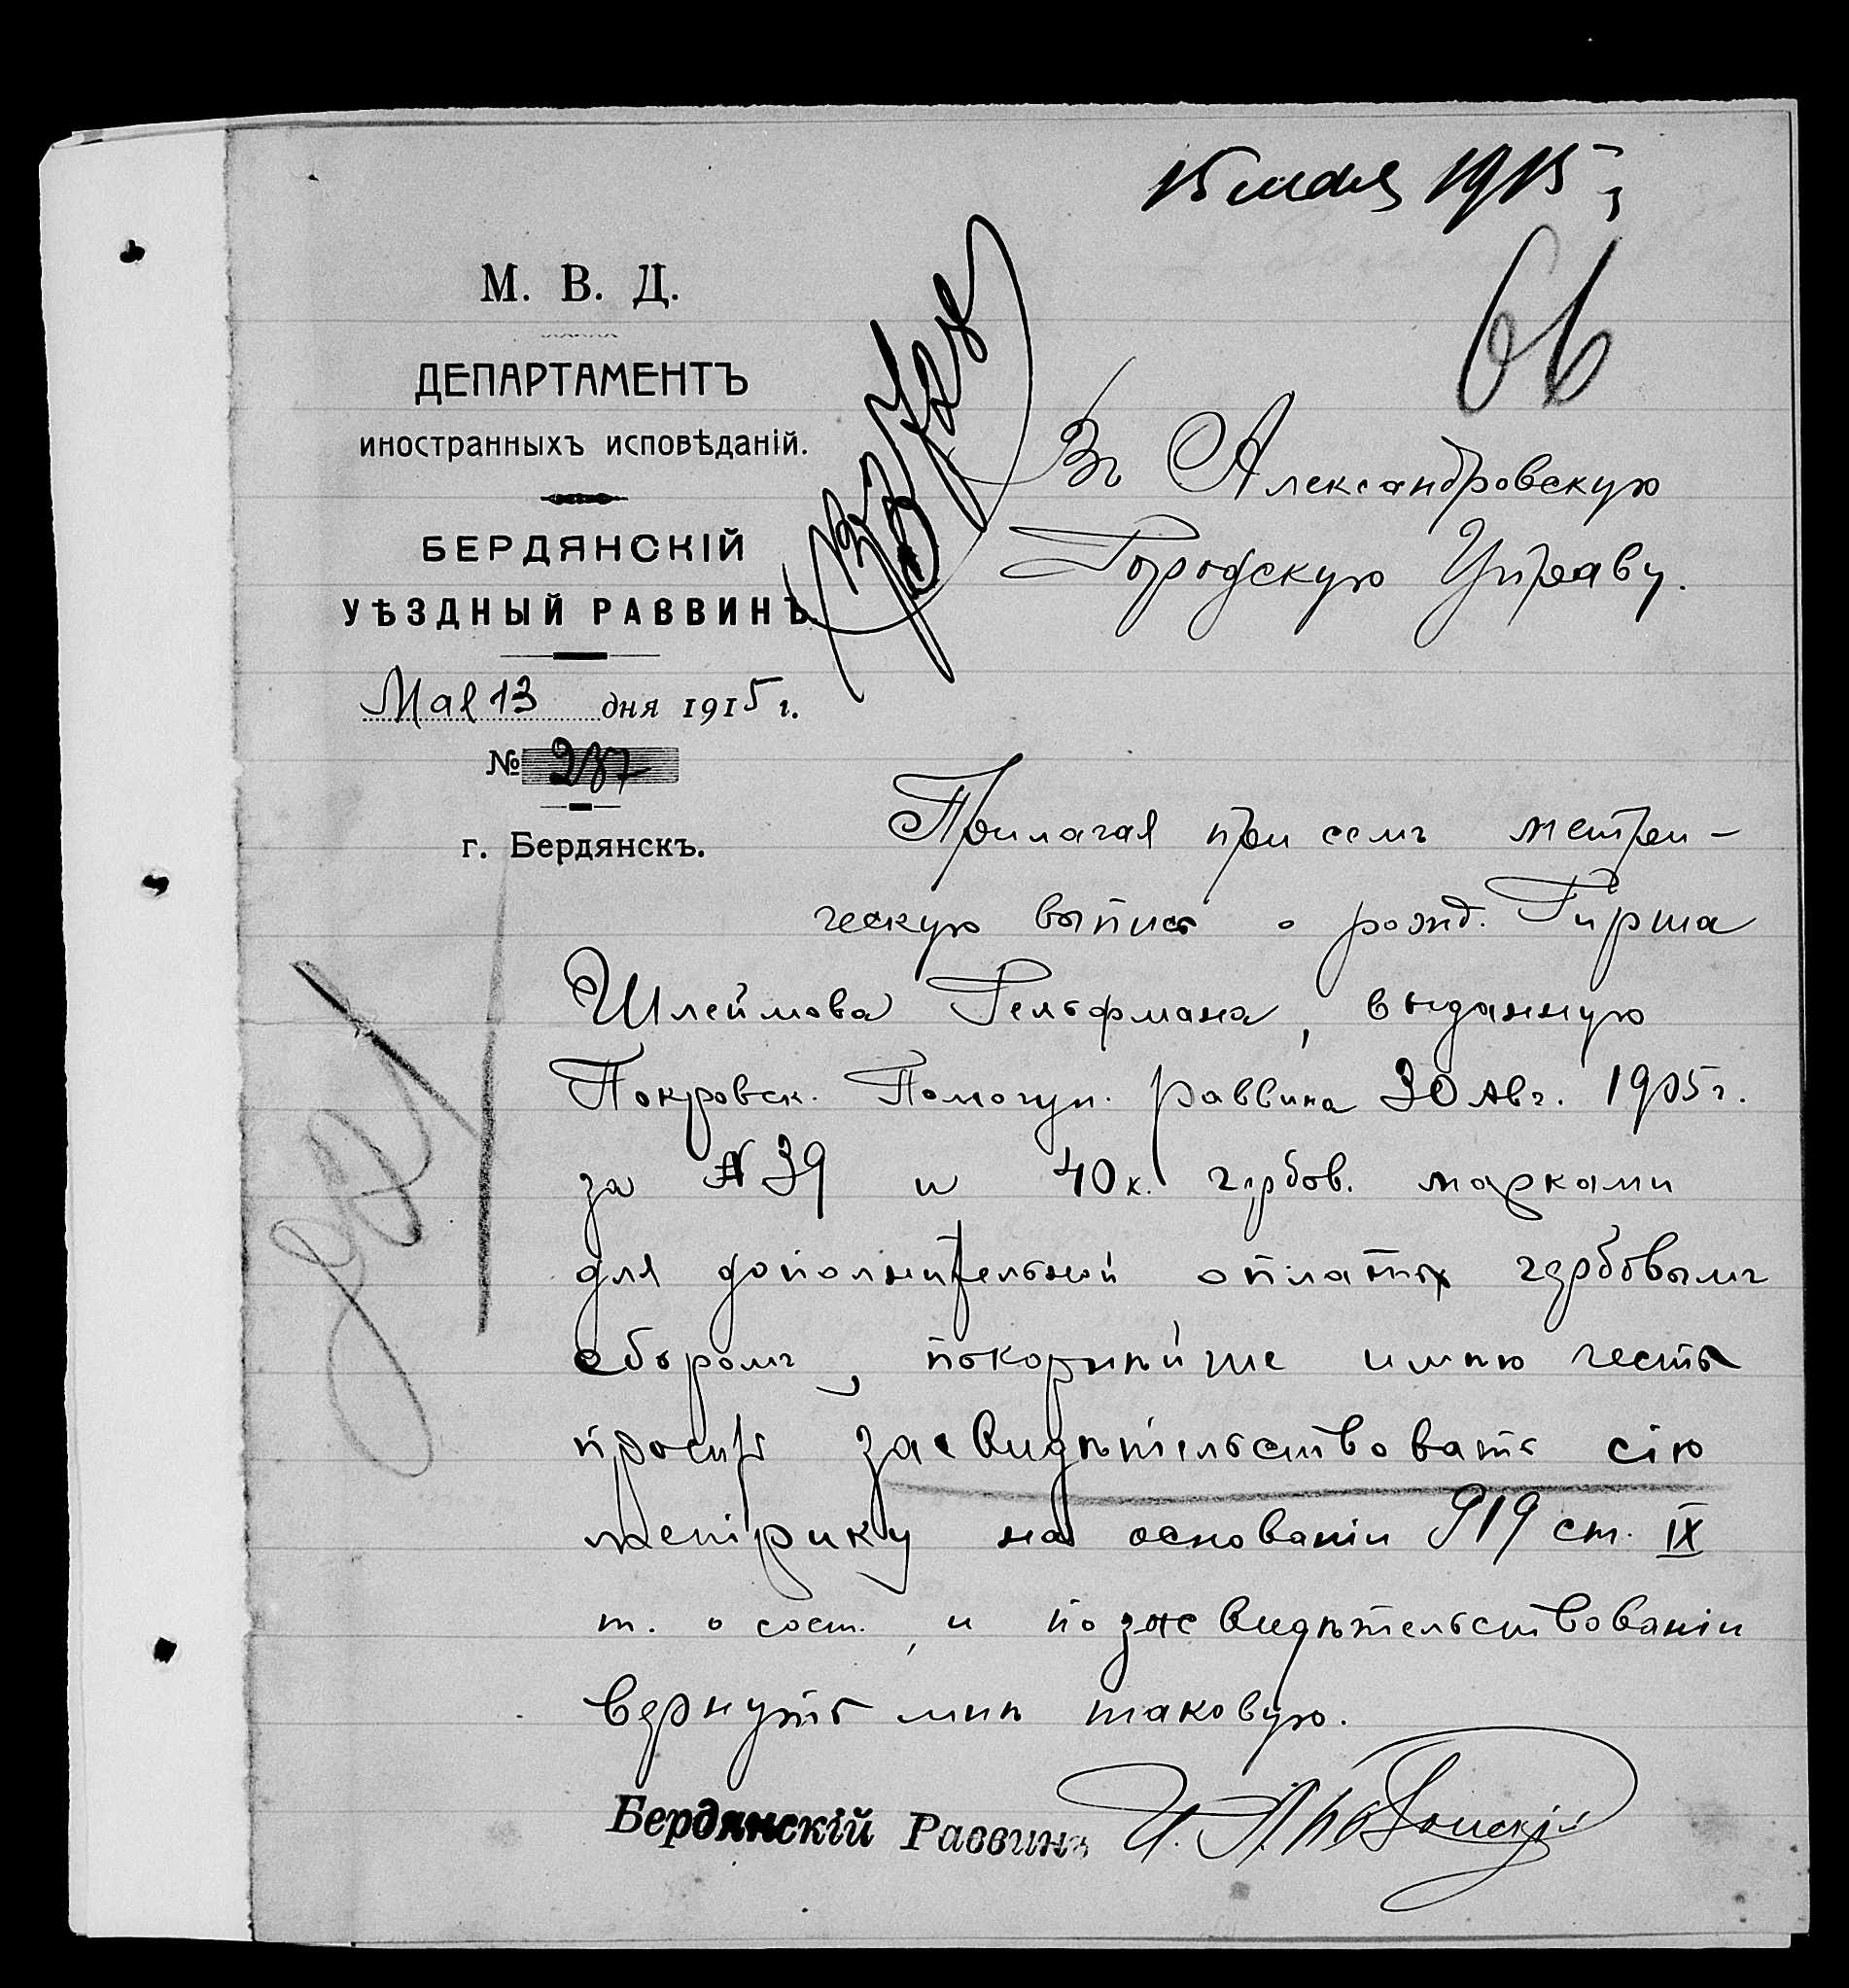 15 мая 1915 г
66
М. В. Д.
ДЕПАРТАМЕНТЪ
иностранныхъ исповѣданій.
БЕРДЯНСКІЙ
УѢЗДНЫЙ РАВВИНЪ
Мая 13 дня 1915 г.
№ 287
г. Бердянскъ.
Въ Александровскую
Городскую Управу.
Прилагая при семъ метри-
ческую выпись о рожд. Гирша
Шлеймова Гельфмана, выданную
Покровск. Помощн. раввина 30 Авг. 1905 г.
за № 39 и 40 к. гербов. марками
для дополнительной оплаты гербовымъ
сборомъ, покорнѣйше имѣю честь
просить засвидѣтельствовать сію
метрику на основаніи 919 ст. IX
т. о сост., и по засвидѣтельствованіи
вернуть мнѣ таковую.
Бердянскій Раввинъ